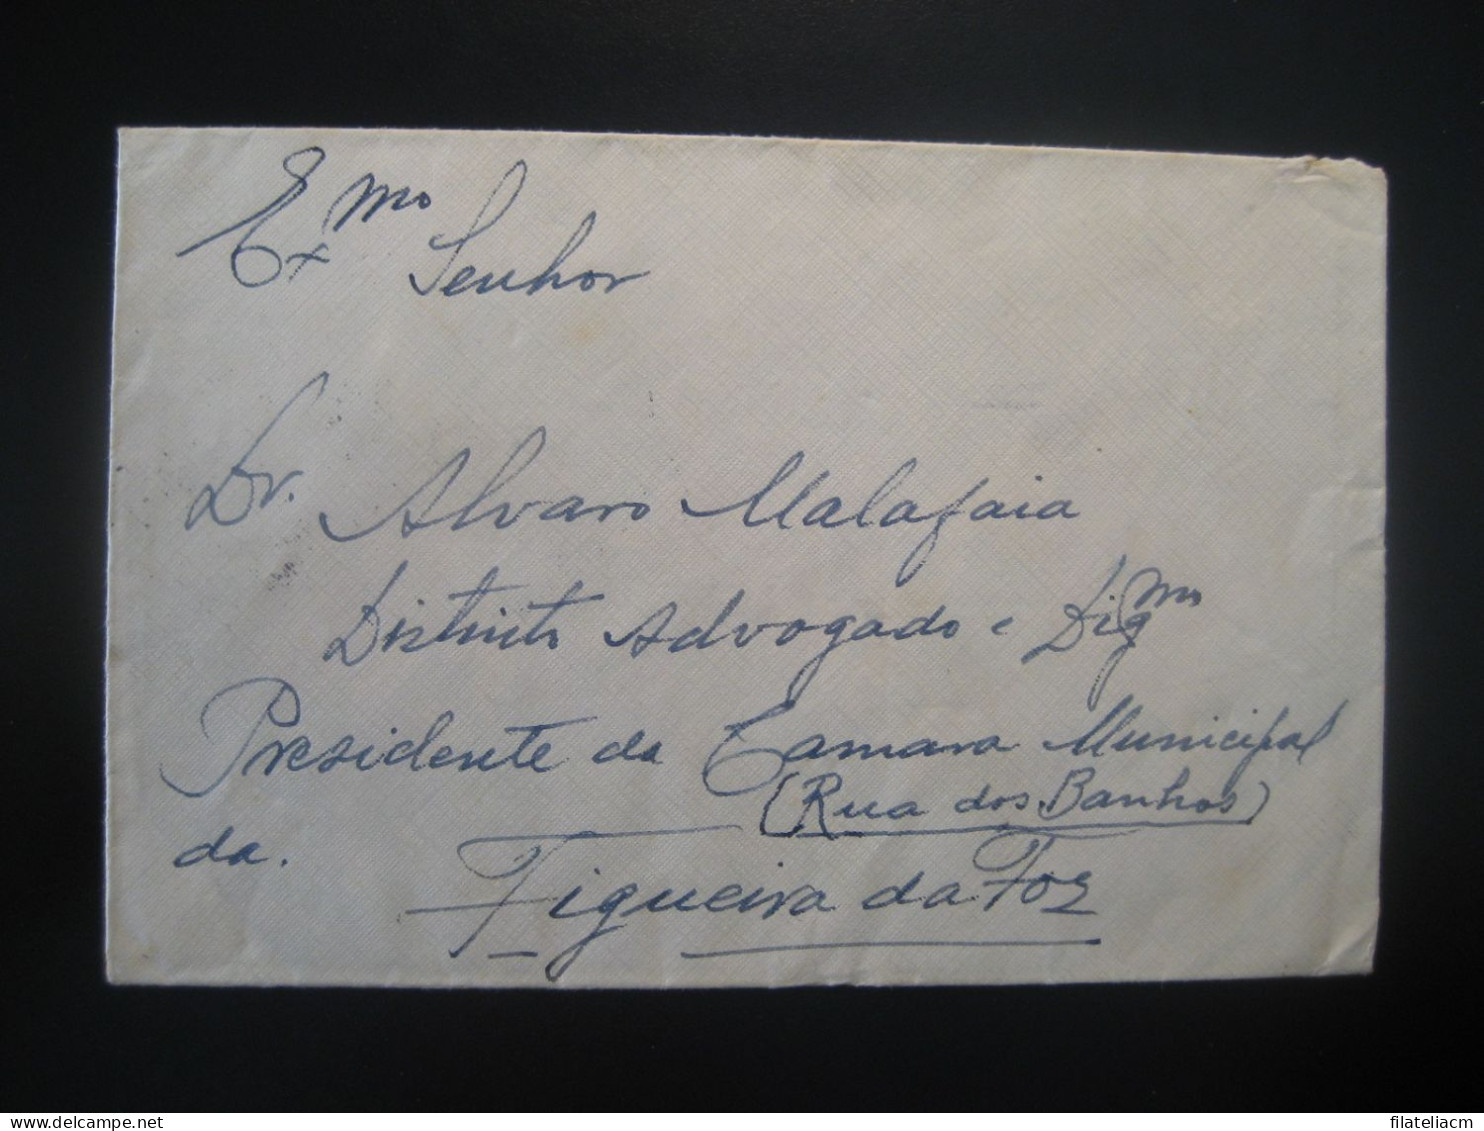 Exmo Senhor
Dr. Alvaro Malafaia
Distinto Advogado e Digmo
Presidente da Camara Municipal
(Rua dos Banhos)
da.
Figueira da Foz
filateliacm